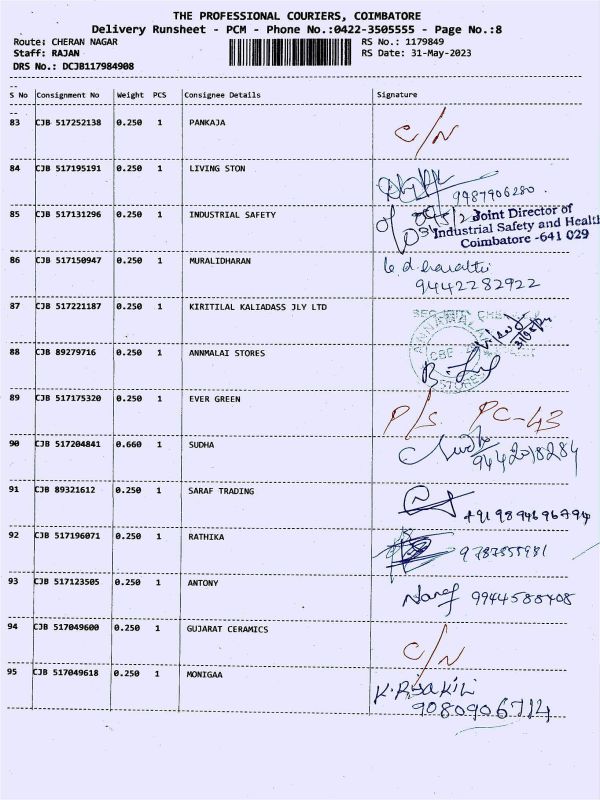 THE PROFESSIONAL COURIERS, COIMBATORE
Delivery Runsheet - PCM - Phone No.:0422-3505555 - Page No.:8
Route: CHERAN NAGAR RS No.: 1179849
Staff: RAJAN RS Date: 31-May-2023
DRS No.: DCJB117984908
S No Consignment No Weight PCS Consignee Details Signature
83 CJB 517252138 0.250 1 PANKAJA C/N
84 CJB 517195191 0.250 1 LIVING STON
9987906280.
85 CJB 517131296 0.250 1 INDUSTRIAL SAFETY
Joint Director of
Industrial Safety and Health
Coimbatore -641 029
86 CJB 517150947 0.250 1 MURALIDHARAN
9442282922
87 CJB 517221187 0.250 1 KIRITILAL KALIADASS JLY LTD
88 CJB 89279716 0.250 1 ANNMALAI STORES
CBE
89 CJB 517175320 0.250 1 EVER GREEN P/S PC-43
90 CJB 517204841 0.660 1 SUDHA Sudha
9442018284
91 CJB 89321612 0.250 1 SARAF TRADING
+91 9894696794
92 CJB 517196071 0.250 1 RATHIKA 9787855981
93 CJB 517123505 0.250 1 ANTONY 9944588408
94 CJB 517049600 0.250 1 GUJARAT CERAMICS C/N
95 CJB 517049618 0.250 1 MONIGAA
9080906714